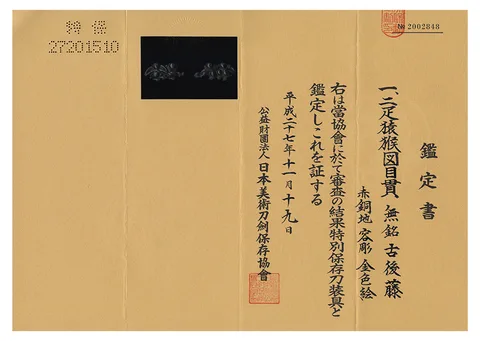 特保
27201510
№ 2002848
鑑定書
一、二疋猿猴図目貫 無銘 古後藤
赤銅地 容彫 金色絵
右は當協會に於て審査の結果特別保存刀装具と
鑑定しこれを証する
平成二十七年十一月十九日
公益財團法人日本美術刀剣保存協會